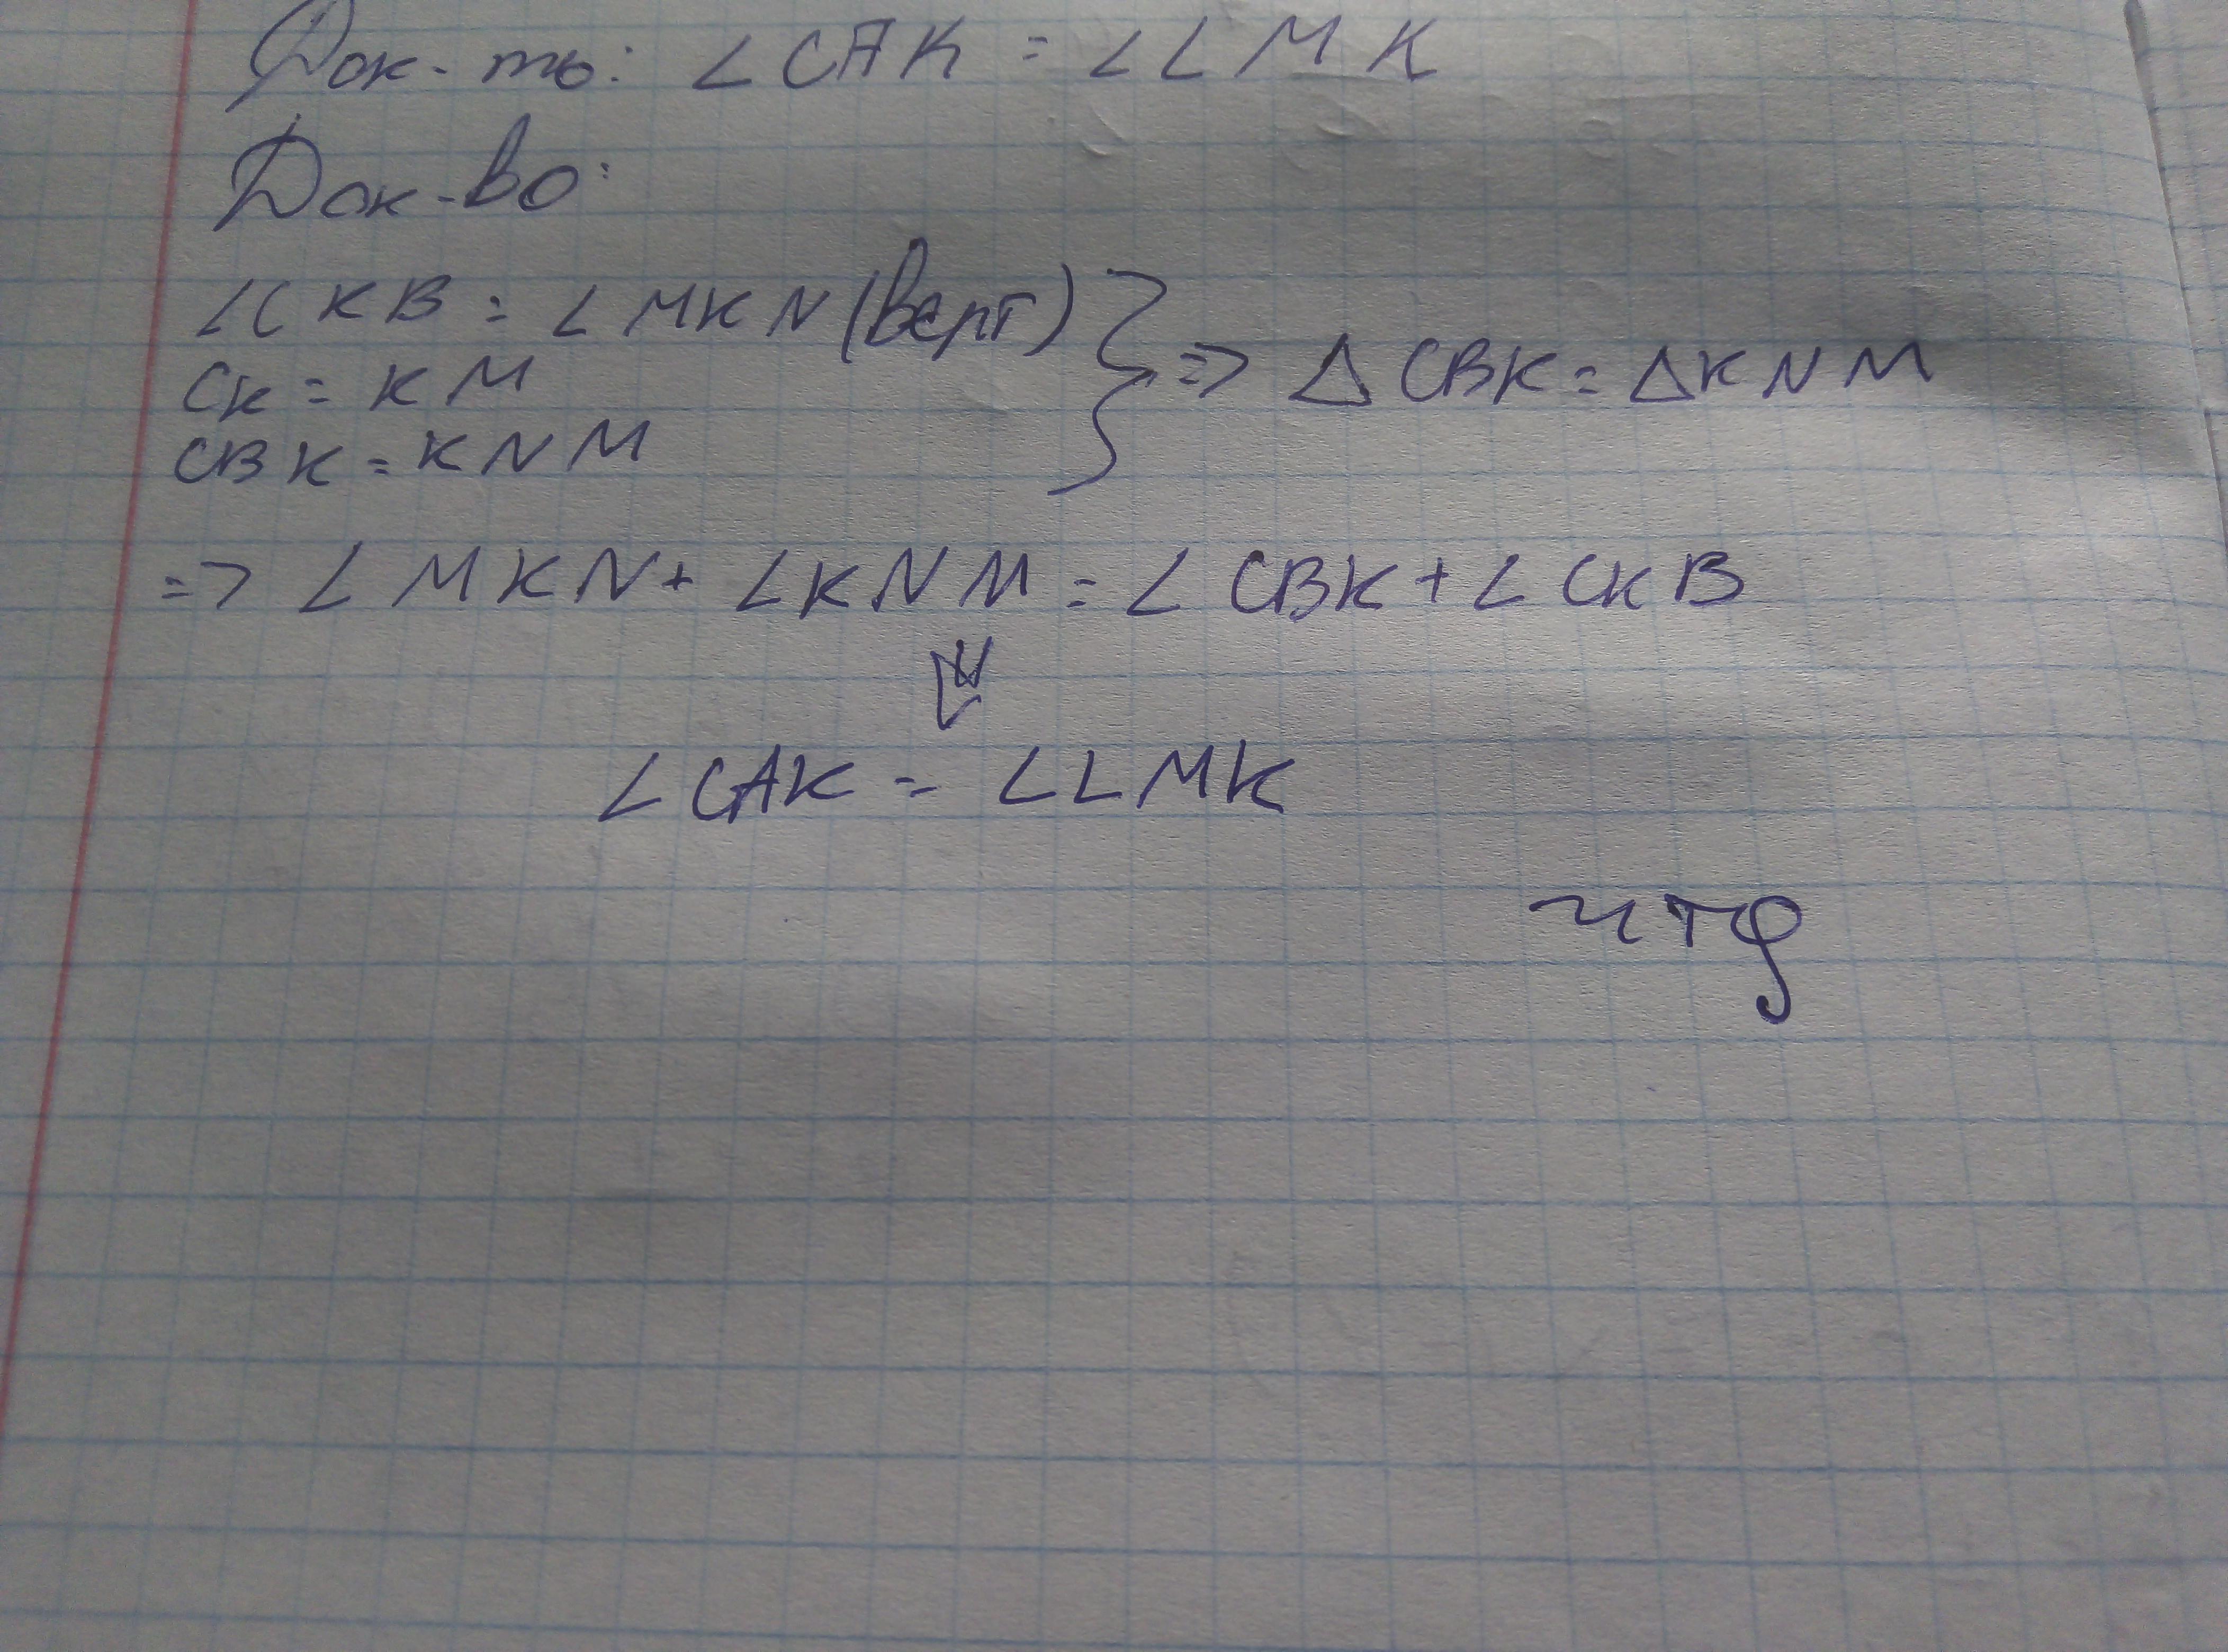 Док-ть: ∠CAK = ∠LMK
Док-во:
∠CKB = ∠MKN (верт)
CK = KM
CBK = KNM
} => △CBK = △KNM
=> ∠MKN + ∠KNM = ∠CBK + ∠CKB
⇓
∠CAK = ∠LMK
чтд